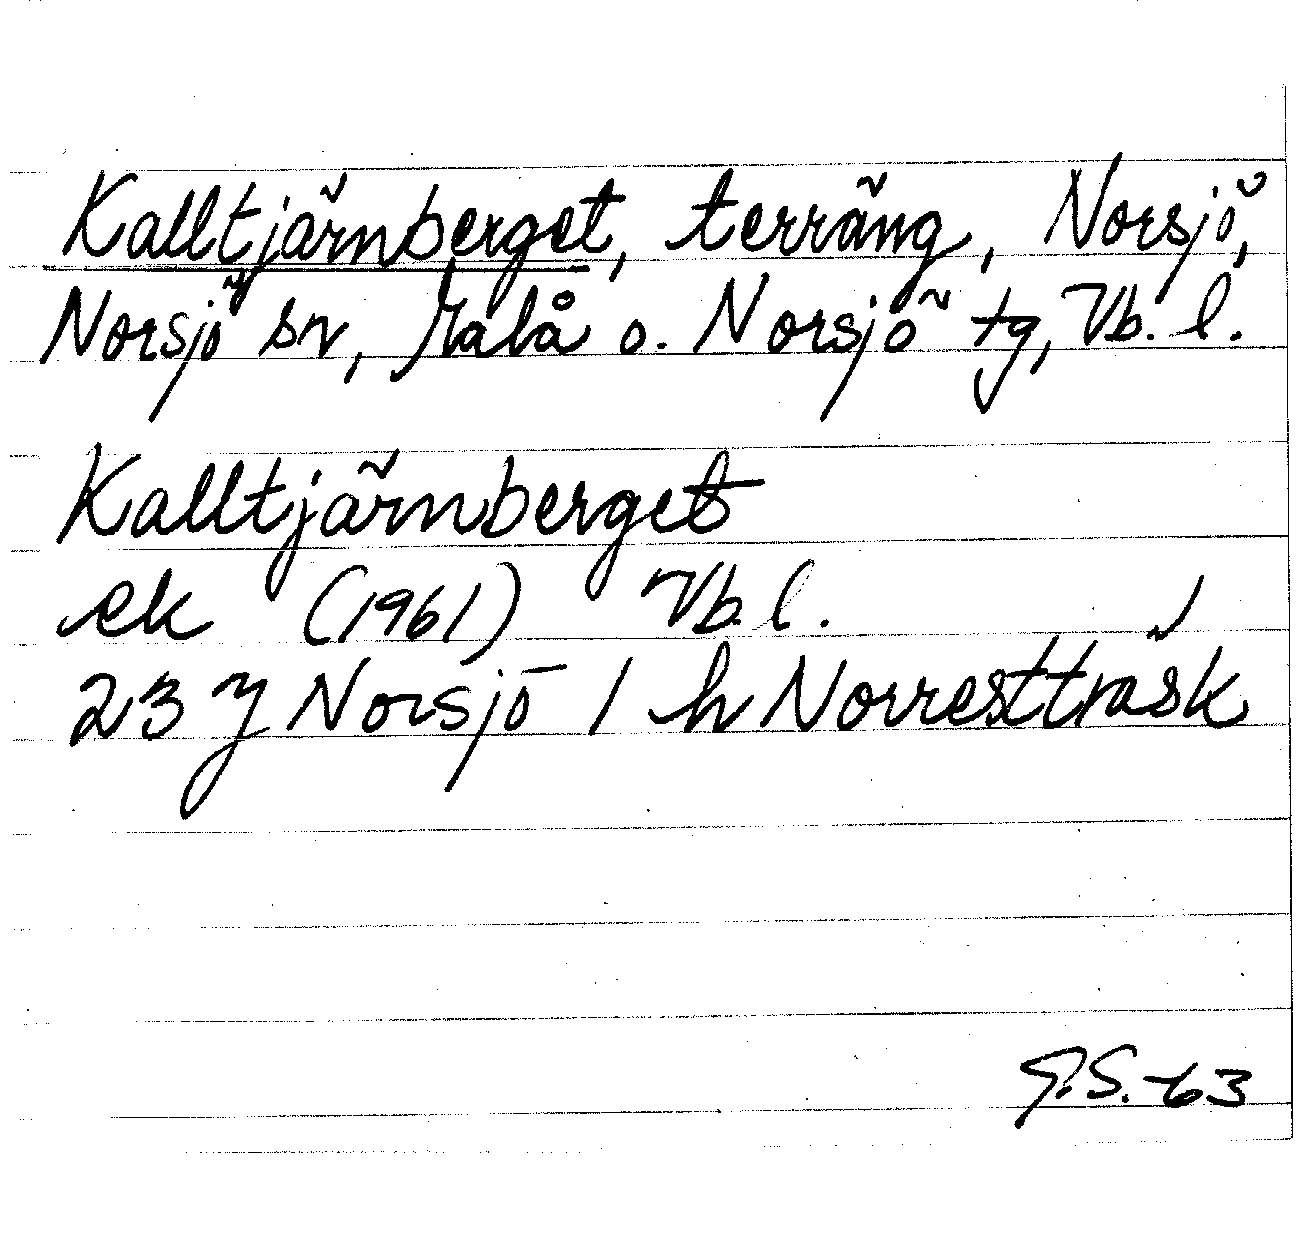 Kalltjärnberget, terräng, Norsjö,
Norsjö sn, Malå o. Norsjö tg, Vb. l.
Kalltjärnberget
ek (1961) Vb. l.
23 J Norsjö / h Norresttråsk
G.S. -63